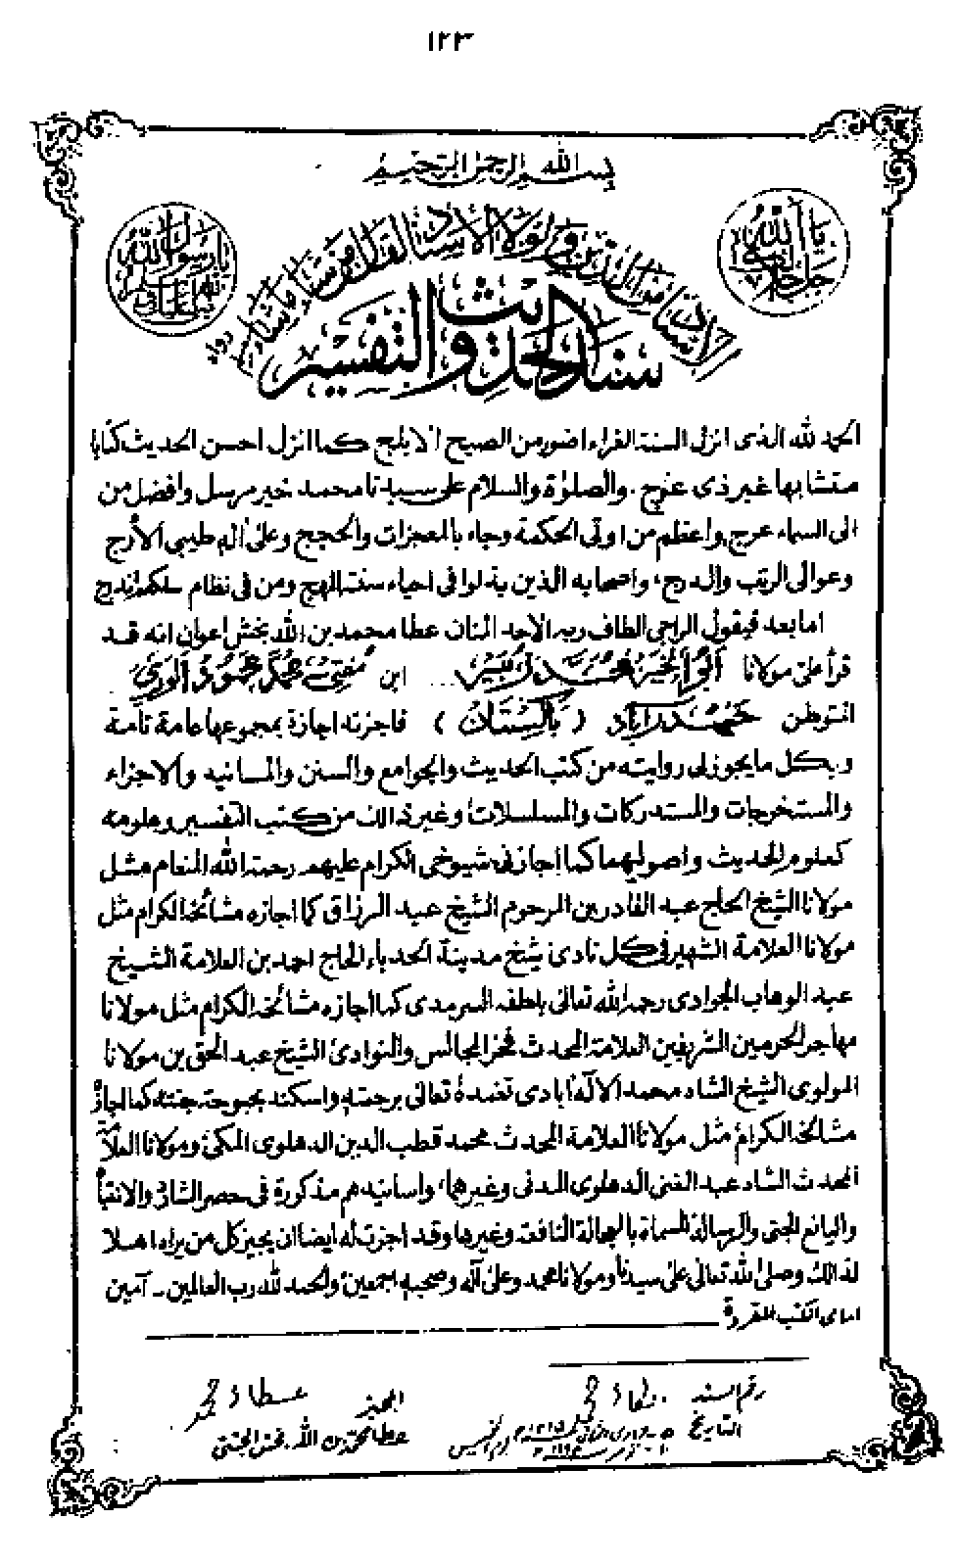 ١٢٣
بسم الله الرحمن الرحيم
يا الله جل جلاله
يا رسول الله
الاسناد من الدين ولولا الاسناد لقال من شاء ما شاء رواه
سند الحديث والتفسير
الحمد لله الذى انزل السنة الغراء اضوء من الصبح الابلج كما انزل احسن الحديث كتابا
متشابها غير ذى عوج، والصلوٰة والسلام على سيدنا محمد خير مرسل وافضل من
الى السماء عرج، واعظم من اوتى الحكمة وجاء بالمعجزات والحجج وعلىٰ اٰله طيبى الأرج
وعوالى الرتب والدرج، واصحابه الذين بذلوا فى احياء سنته المهج ومن فى نظام سلكهم اندرج
اما بعد فيقول الراجى الطاف ربه الاحد المنان عطا محمد بن الله بخش اعوان انه قد
قرأ علىّ مولانا ابو الخير محمد زبير ... ابن مفتى محمد محمود الورى
المتوطن حيدرآباد (پاكستان) فاجزته اجازة بمجموعها عامة تامة
وبكل ما يجوز لى روايته من كتب الحديث والجوامع والسنن والمسانيد والاجزاء
والمستخرجات والمستدركات والمسلسلات وغير ذالك من كتب التفسير وعلومه
كعلوم الحديث واصولهما كما اجازنى شيوخى الكرام عليهم رحمة الله المنعام مثل
مولانا الشيخ الحاج عبد القادر بن المرحوم الشيخ عبد الرزاق كما اجازه مشائخه الكرام مثل
مولانا العلامة الشهير فى كل نادى شيخ مدينة الحدباء الحاج احمد بن العلامة الشيخ
عبد الوهاب الجوادى رحمه الله تعالىٰ بلطفه السرمدى كما اجازه مشائخه الكرام مثل مولانا
مهاجر الحرمين الشريفين العلامة المحدث فخر المجالس والنوادى الشيخ عبد الحق بن مولانا
المولوى الشيخ الشاه محمد الالٰه اٰبادى تغمده تعالىٰ برحمته واسكنه بحبوحة جنته كما اجازه
مشائخه الكرام مثل مولانا العلامة المحدث محمد قطب الدين الدهلوى المكى ومولانا العلامة
المحدث الشاه عبد الغنى الدهلوى المدنى وغيرهما، واسانيدهم مذكورة فى حصر الشارد والانتباه
واليانع الجنى والرسالة المسماة بالعجالة النافعة وغيرها وقد اجزت له ايضا ان يجيز كل من يراه اهلا
لذالك وصلى الله تعالىٰ على سيدنا ومولانا محمد وعلىٰ اٰله وصحبه اجمعين والحمد لله رب العالمين ـ آمين
اسامى الكتب المقروءة
رقم السند
المجيز عطا محمد
التاريخ
عطا محمد بن الله بخش الچشتى